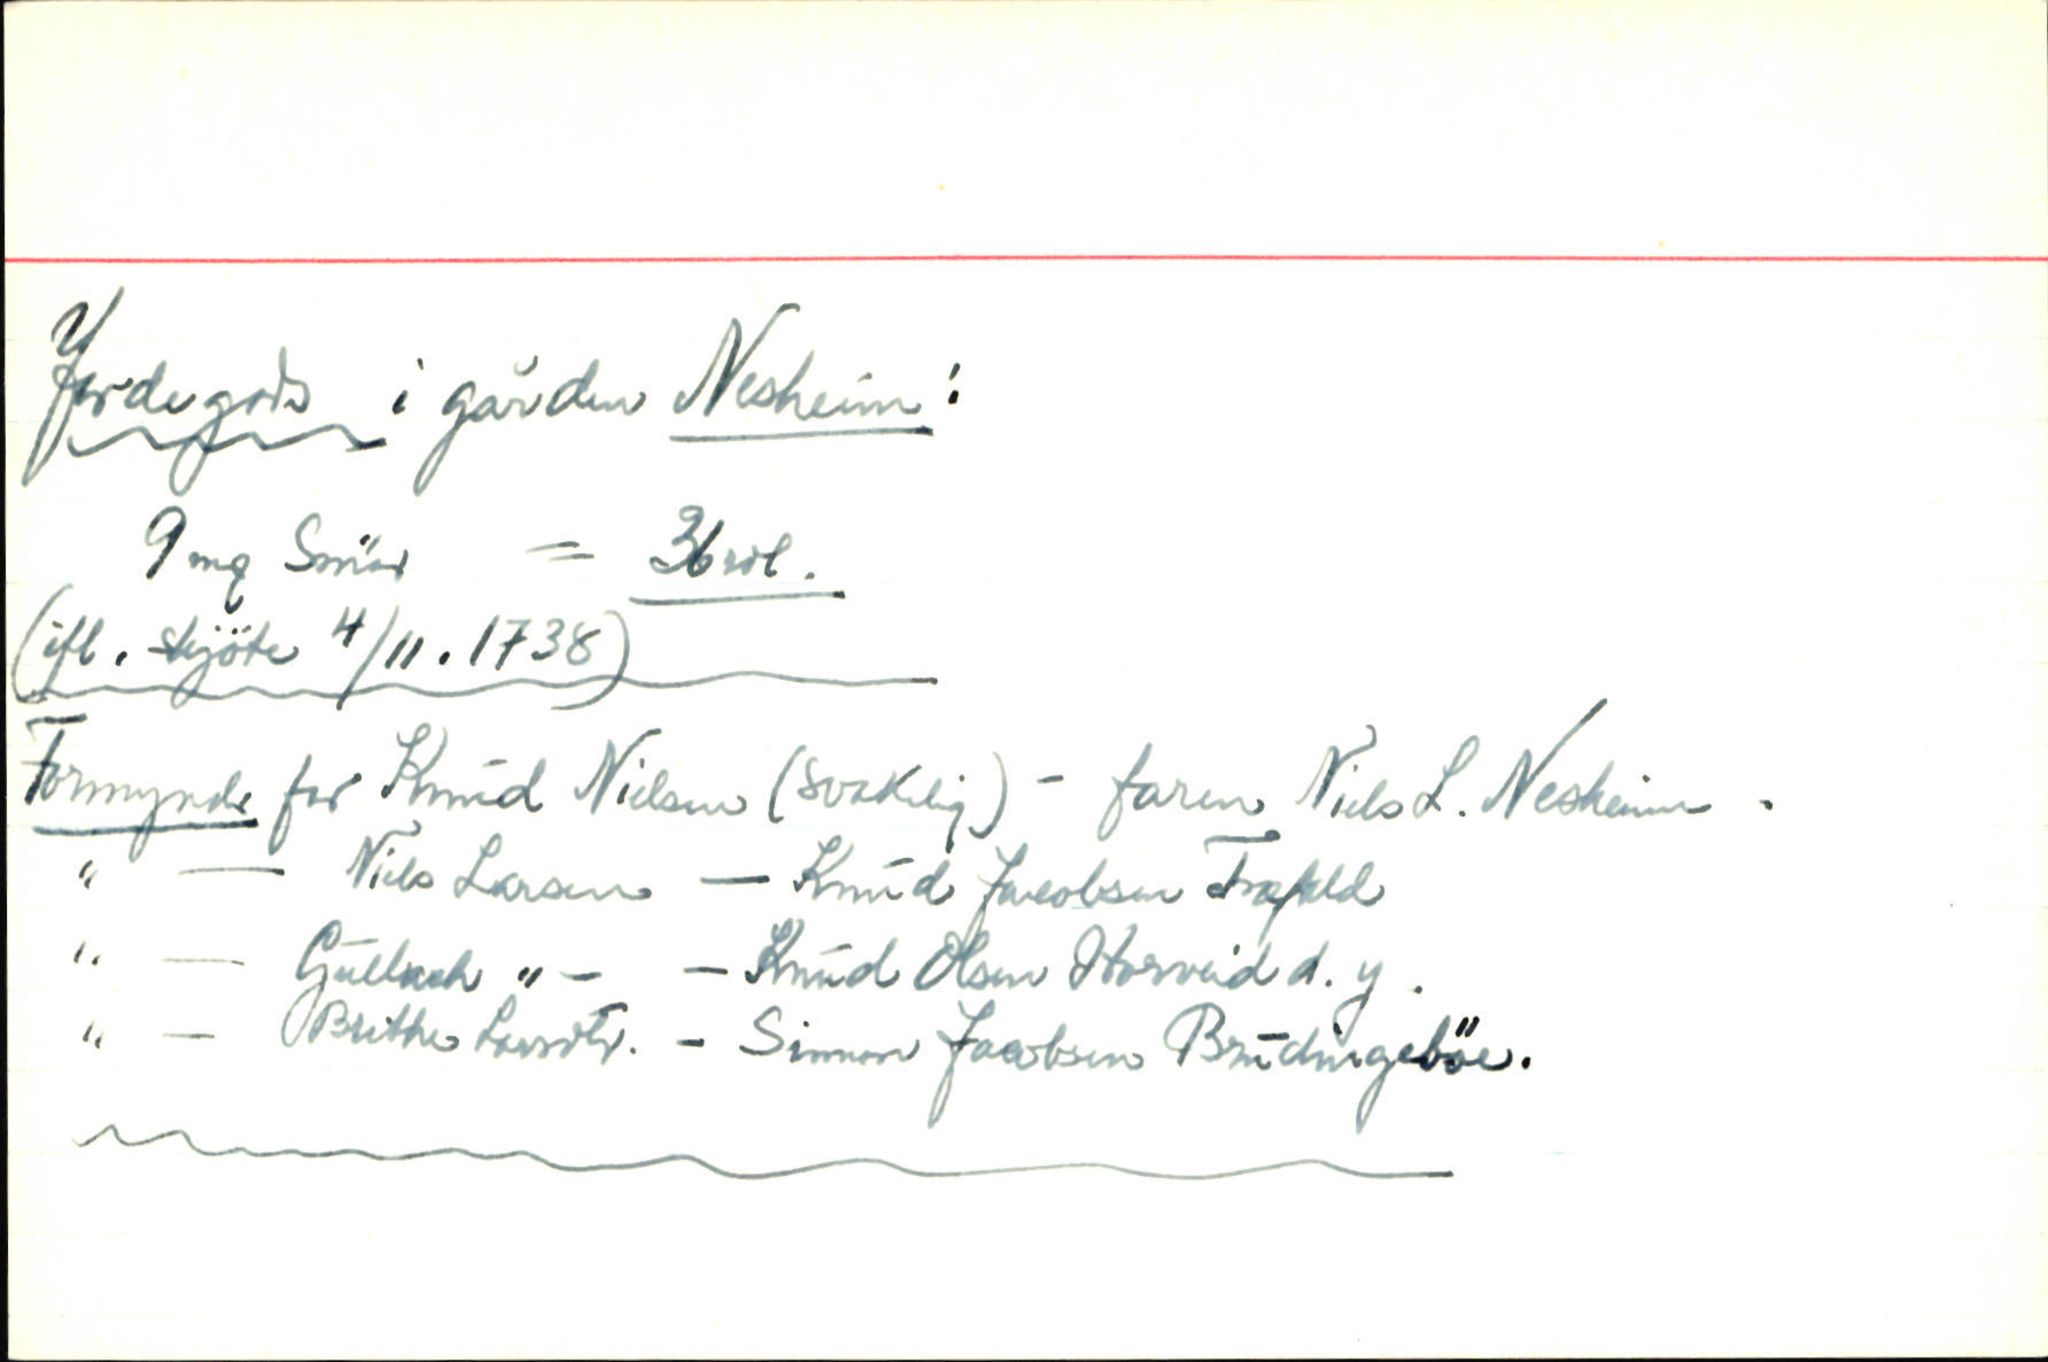 Jordegods i gården Nesheim:
9 mq Smör = 36 rdl.
(ifl. skjöte 4/11. 1738)
Formyndr for Knud Nielsen (svaklig) - faren Niels L. Nesheim.
" — Niels Larsen — Knud Jacobsen Trefald
" — Gullach " - - Knud Olsen Horveid d. y.
" — Brithe Larsdtr. - Simon Jacobsen Brudingebøe.